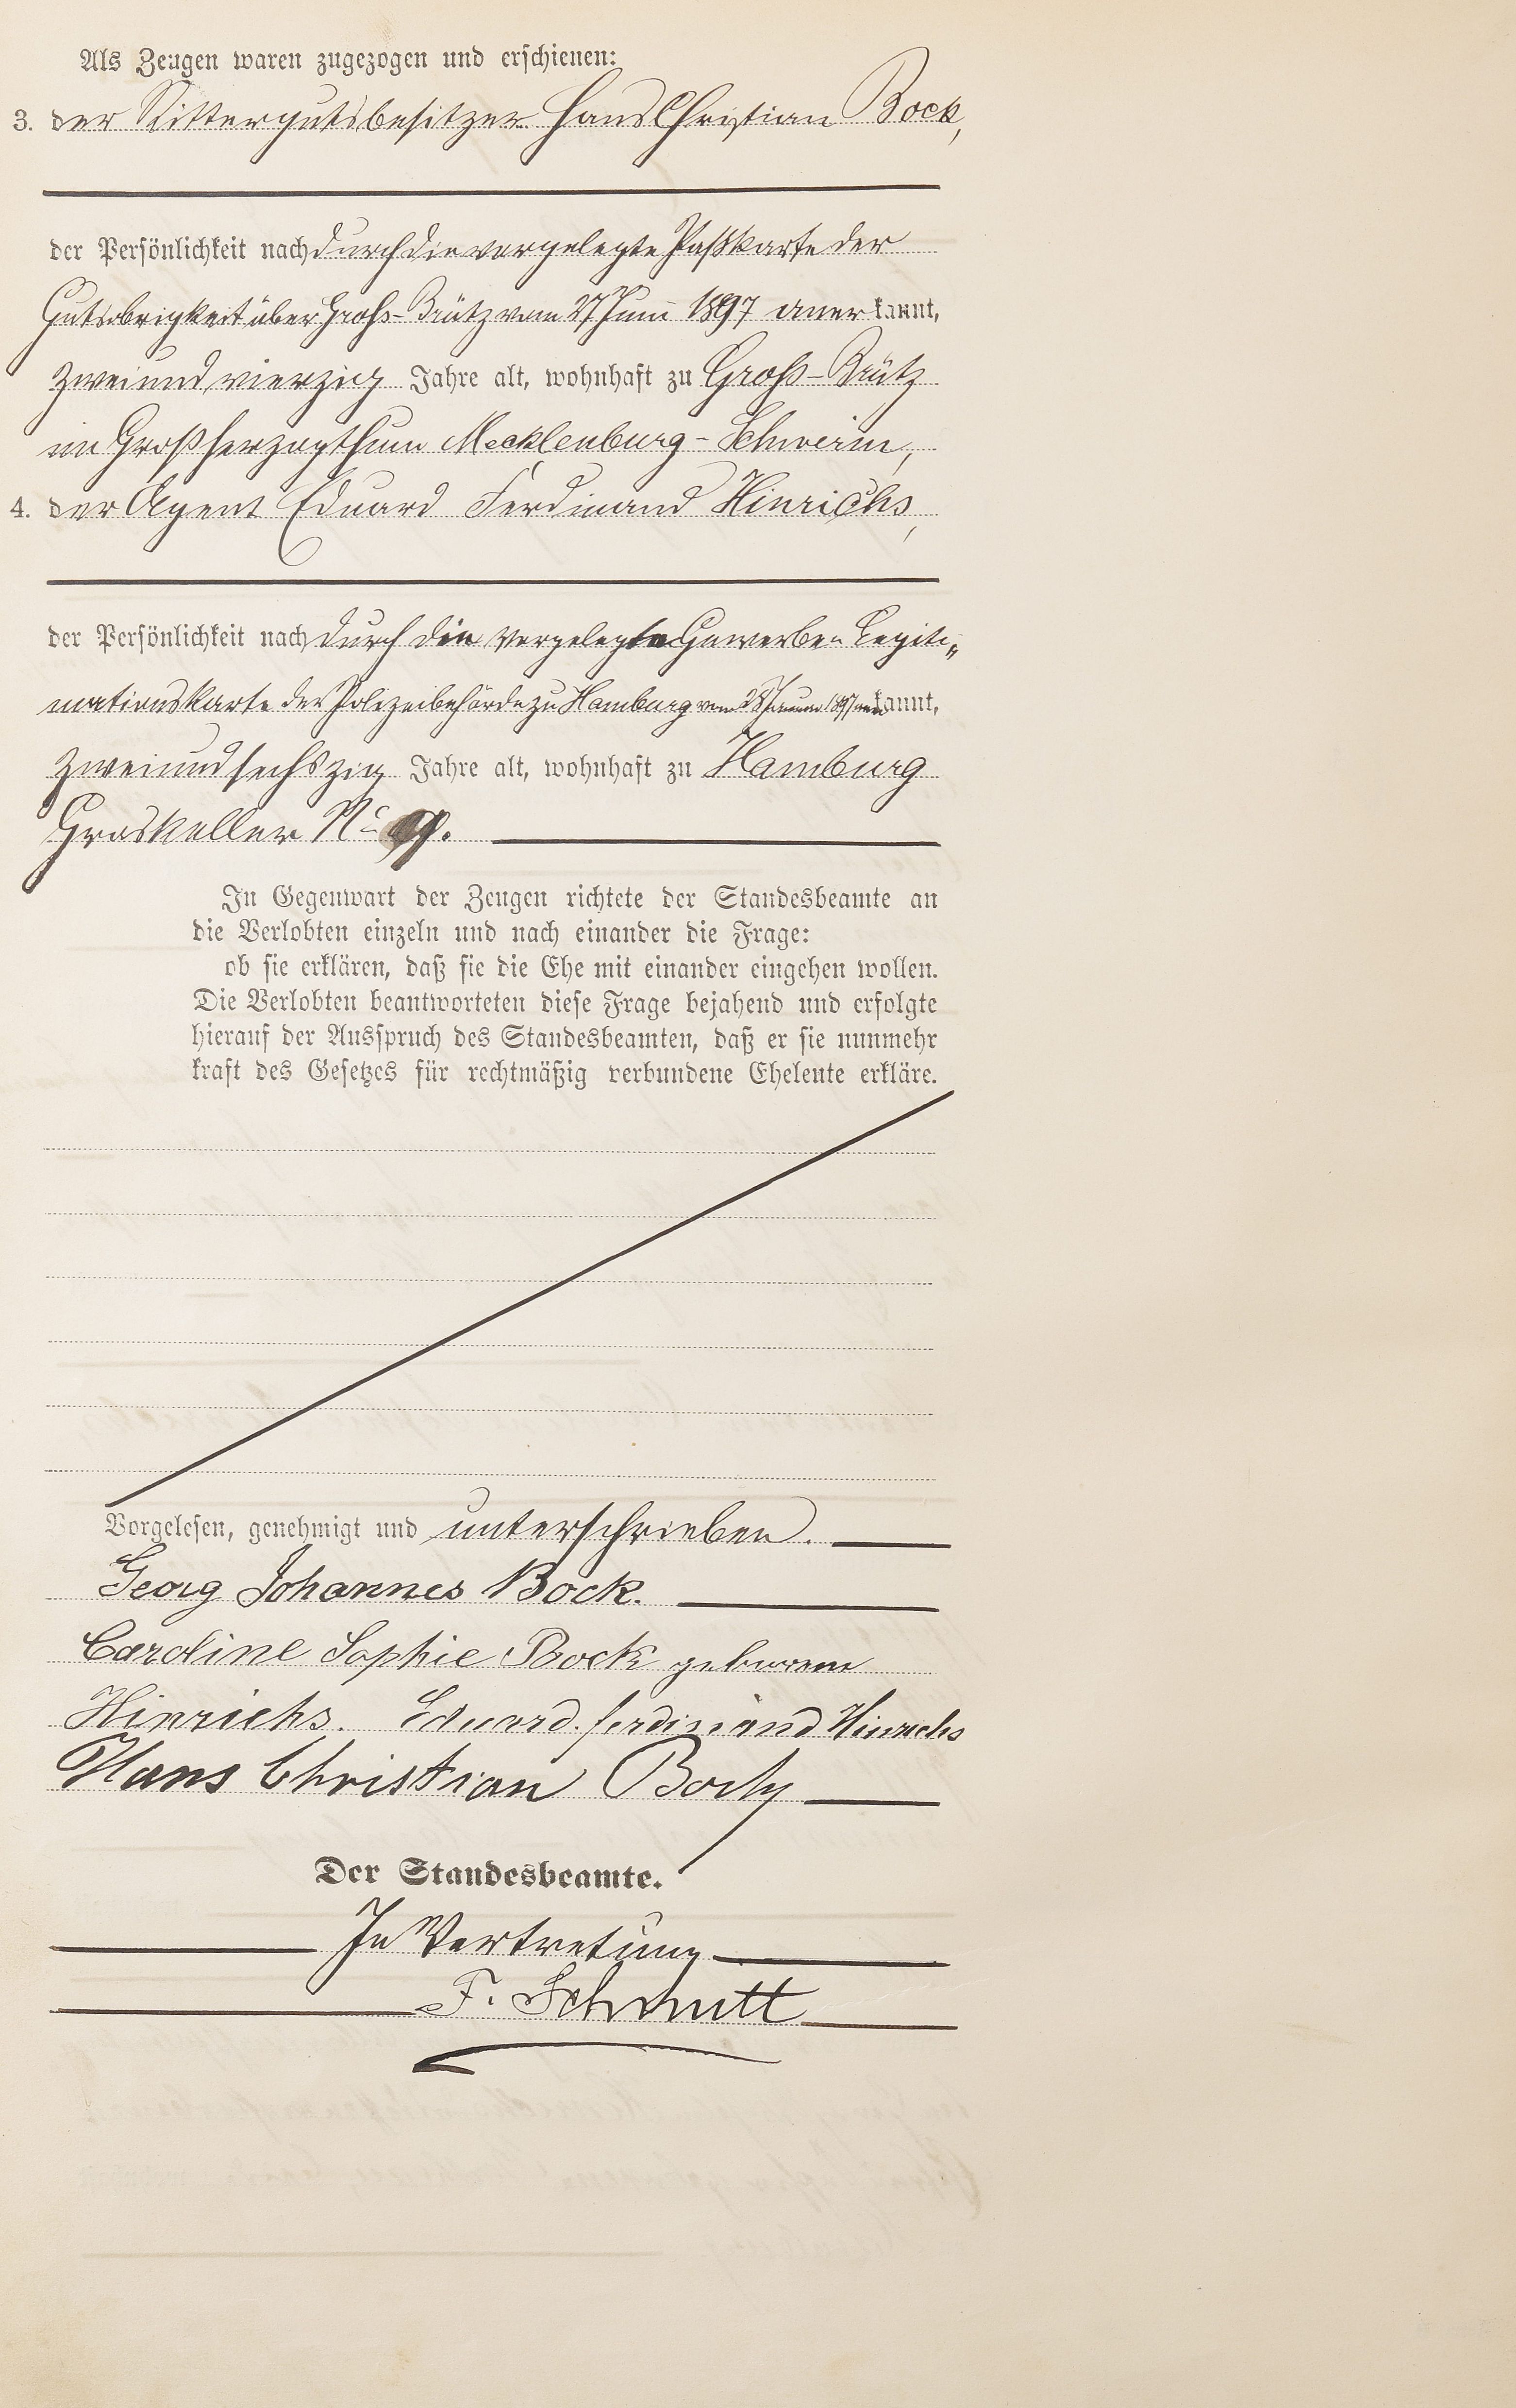 Als Zeugen waren zugezogen und erschienen:
3. der Rittergutsbesitzer Hans Christian Bock,
der Persönlichkeit nach durch die vorgelegte Paßkarte der
Gutsobrigkeit über Groß-Brütz vom 27 Juni 1897 anerkannt,
zweiundvierzig Jahre alt, wohnhaft zu Groß-Brütz
im Großherzogthum Mecklenburg-Schwerin,
4. der Agent Eduard Ferdinand Hinrichs,
der Persönlichkeit nach durch die vorgelegte Gewerbe= Legiti„
mationskarte der Polizeibehörde zu Hamburg vom 28 Januar 1897 anerkannt,
zweiundsechszig Jahre alt, wohnhaft zu Hamburg
Graskeller No
In Gegenwart der Zeugen richtete der Standesbeamte an
die Verlobten einzeln und nach einander die Frage:
ob sie erklären, daß sie die Ehe mit einander eingehen wollen.
Die Verlobten beantworteten diese Frage bejahend und erfolgte
hierauf der Ausspruch des Standesbeamten, daß er sie nunmehr
kraft des Gesetzes für rechtmäßig verbundene Eheleute erkläre.
Vorgelesen, genehmigt und unterschrieben.
Georg Johannes Bock.
Caroline Sophie Bock geborene
Hinrichs. Eduard. Ferdinand Hinrichs
Hans Christian Bock
Der Standesbeamte.
In Vertretung
F. Schmitt